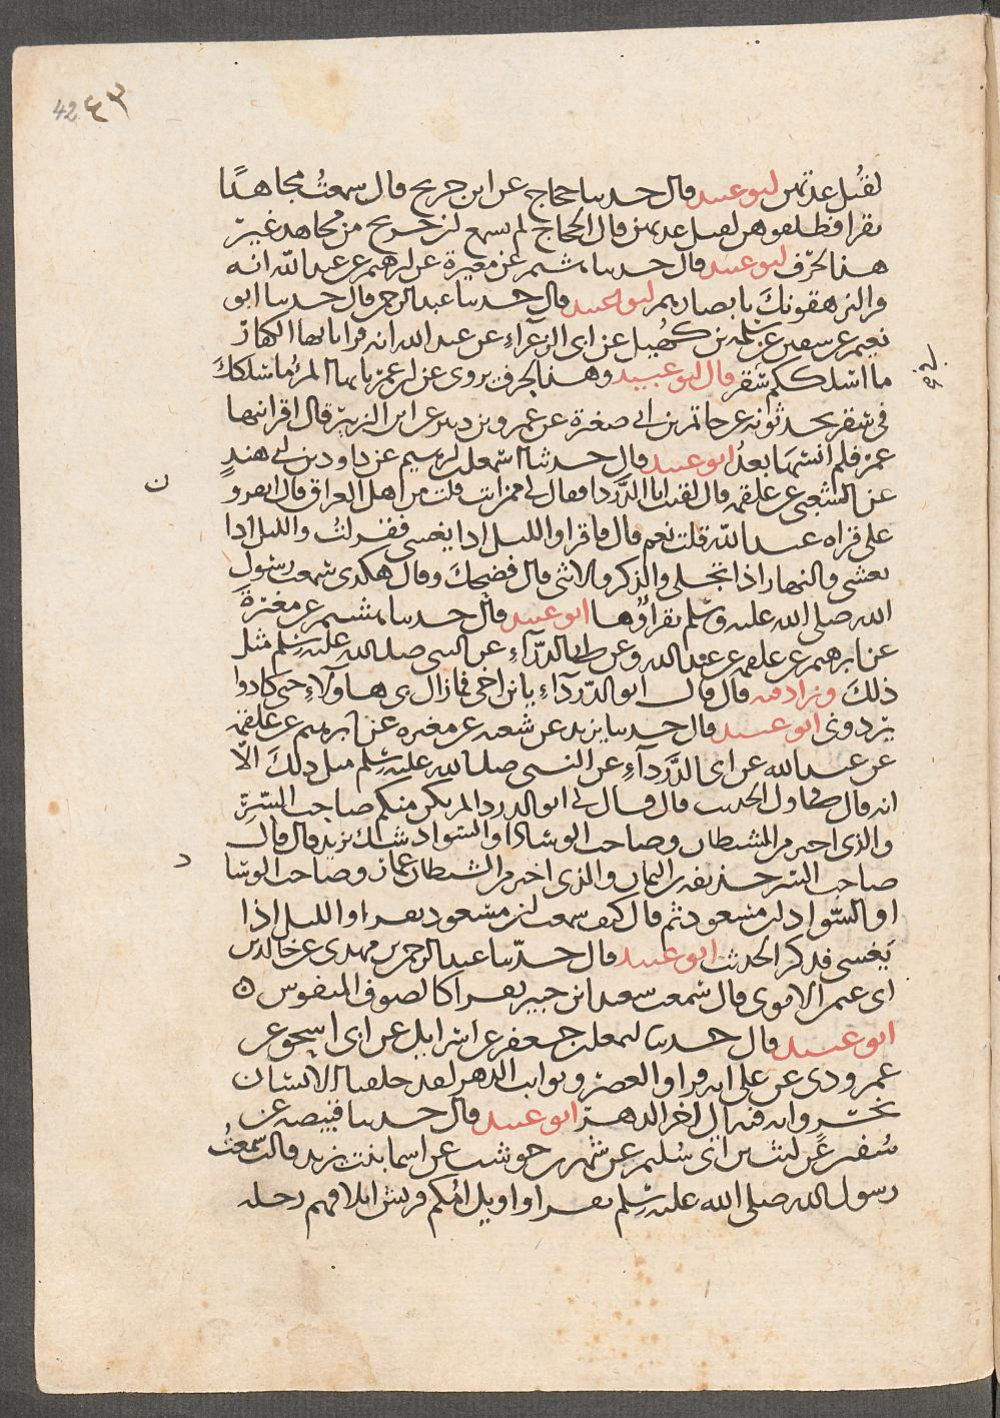 42 ٤٣
لقبل عدتهن ابو عبيد قال حدثنا حجاج عن ابن جريج قال سمعتُ مجاهدًا
يقرا فطلقوهن لقبل عدتهن قال الحجاج لم يسمع ابن جريج من مجاهد غير
هذا الحرف ابو عبيد قال حدثنا هشيم عن مغيرة عن ابرهيم عن عبد الله انه
قرا ليزهقونك بابصارهم ابو عبيد قال حدثنا عبد الرحمن قال حدثنا ابو
نعيم عن سفين عن سلمة بن كهيل عن ابي الزعراء عن عبد الله انه قرا يا ايها الكفار
ما اسلككم في سقر قال ابو عبيد وهذا الحرف يروى عن ابن عمر يا ايها المرء ما سلكك
في سقر يحدثونه عن حاتم بن ابي صغرة عن عمرو بن دينر عن ابن الزبير قال اقرانيها
عمر فلم انسها بعدُ ابو عبيد قال حدثنا اسمعيل بن ابرهيم عن داود بن ابي هندٍ
عن الشعبي عن علقمة قال لقينا ابا الدردا فقال لي ممن انت قلت من اهل العراق قال اتقرو
على قراه عبد الله قلت نعم قال فاقرا والليل اذا يغشى فقرات والليل اذا
يغشى والنهار اذا تجلى والذكر والانثى قال فضحك وقال هكذى سمعت رسول
الله صلى الله عليه وسلم يقراوها ابو عبيد قال حدثنا هشيم عن مغيرة
عن ابرهيم عن علقمة عن عبد الله وعن ابي الدرداء عن النبي صلى الله عليه وسلم مثل
ذلك وزاد فيه قال قال ابو الدرداء يا بن اخي فما زال بي هاولاء حتى كادوا
يردوني ابو عبيد قال حدثنا يزيد عن شعبه عن مغيره عن ابرهيم عن علقمة
عن عبد الله عن ابي الدرداء عن النبي صلى الله عليه وسلم مثل ذلك الا
انه قال في اول الحديث قال قال لي ابو الدردا الم يكن منكم صاحب السر
والذي اجير من الشيطان وصاحب الوساد او السواد شك يزيد قال قال
صاحب السر حذيفه بن اليمان والذي اجير من الشيطان عمار وصاحب الوسا
او السواد ابن مسعود ثم قال كيف سمعت ابن مسعود يقرا والليل اذا
يغشى فذكر الحديث ابو عبيد قال حدثنا عبد الرحمن بن مهدي عن خالد بن
ابي عثمن الاموي قال سمعت سعيد ابن جبير يقرا كالصوف المنفوس ه
ابو عبيد قال حدثنا اسمعيل بن جعفر عن اسرائيل عن ابي اسحق عن
عمرو ذي عن علي انه قرا والعصر ونوائب الدهر لقد خلقنا الانسان
بخسر وانه فيه الى اخر الدهر ابو عبيد قال حدثنا قبيصه عن
سفين عن ليث بن ابي سليم عن شهر بن حوشب عن اسما بنت يزيد قالت سمعتُ
رسول الله صلى الله عليه وسلم يقرا واويل امكم قريش ايلافهم رحله